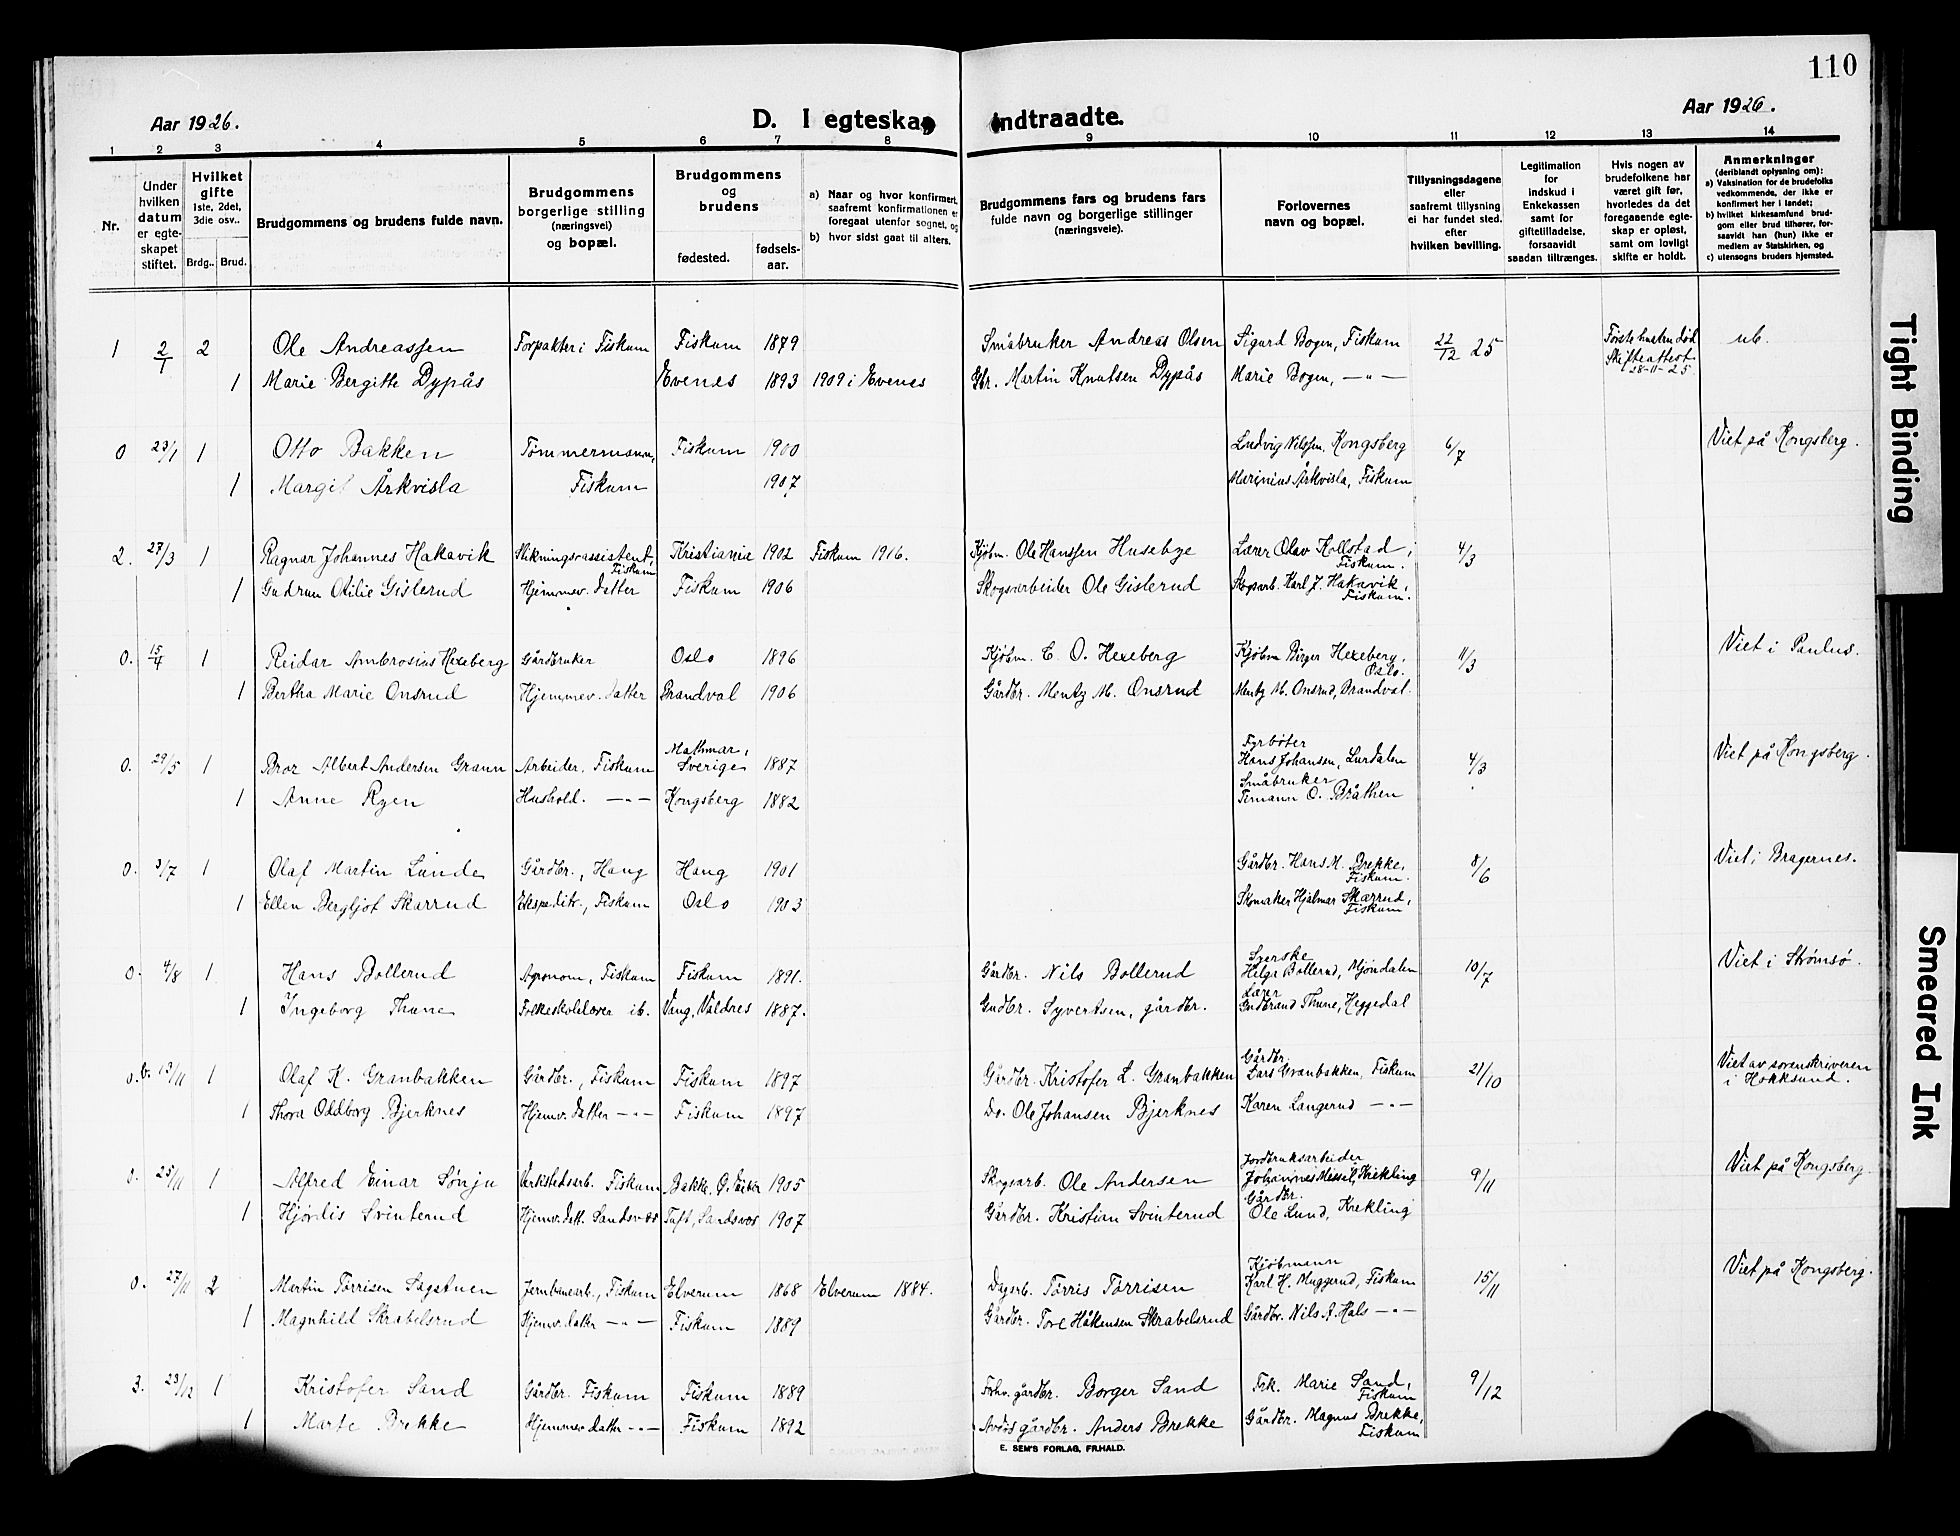 110
Aar 1926.
D. I egteskap indtraadte.
Aar 1926.
1 2 3 4 5 6 7 8 9 10 11 12 13 14
Nr.
Under hvilken datum er egteskapet stiftet.
Hvilket gifte 1ste, 2det, 3die osv..
Brdg.. Brud.
Brudgommens og brudens fulde navn.
Brudgommens borgerlige stilling (næringsvei) og bopæl.
Brudgommens og brudens
fødested.
fødsels-aar.
a) Naar og hvor konfirmert, saafremt konfirmationen er foregaat utenfor sognet, og
b) hvor sidst gaat til alters.
Brudgommens fars og brudens fars fulde navn og borgerlige stillinger (næringsveie).
Forlovernes navn og bopæl.
Tillysningsdagene eller saafremt tillysning ei har fundet sted. efter hvilken bevilling.
Legitimation for indskud i Enkekassen samt for giftetilladelse, forsaavidt saadan tiltrænges.
Hvis nogen av brudefolkene har været gift før, hvorledes da det foregaaende egteskap er opløst, samt om lovligt skifte er holdt.
Anmerkninger (deriblandt oplysning om):
a) Vaksination for de brudefolks vedkommende, der ikke er konfirmert her i landet;
b) hvilket kirkesamfund brudgom eller brud tilhører, forsaavidt han (hun) ikke er medlem av Statskirken, og
c) utensogns bruders hjemsted.
1 2/1 2 Ole Andreassen Forpakter i Fiskum Fiskum 1879 Småbruker Andreas Olsen Sigurd Bogen, Fiskum 22/12 25 Første hustru død Skifteattest 28-11-25 ub.
1 Marie Bergitte Dypås Evenes 1893 1909 i Evenes Gbr. Martin Knutsen Dypås Marie Bogen, —"—
0 23/1 1 Otto Bakken Tømmermann, Fiskum 1900 Ludvig Nilssen, Kongsberg 6/7 Viet på Kongsberg.
1 Margit Årkvisla Fiskum 1907 Marinius Årkvisla, Fiskum
2. 27/3 1 Ragnar Johannes Hakavik Stikningsassistent, Fiskum Kristiania 1902 Fiskum 1916. Kjøbm. Ole Hanssen Husebye Lærer Olav Kollstad, Fiskum. 4/3
1 Gudrun Otilie Gislerud Hjemmev. datter Fiskum 1906 Skogsarbeider Ole Gislerud Skogsarb. Karl J. Hakavik, Fiskum.
0. 15/4 1 Reidar Ambrosius Hexeberg Gårdbruker Oslo 1896 Kjøbm. C. O. Hexeberg Kjøbm Birger Hexeberg, Oslo. 11/3 Viet i Paulus.
1 Bertha Marie Onsrud Hjemmev. datter Brandval 1906 Gårdbr. Mentz M. Onsrud Mentz M. Onsrud, Brandval.
0. 29/5 1 Bror Albert Andersen Grann Arbeider, Fiskum Mathmar, Sverige 1887 Fyrbøter Hans Johansen, Lurdalen 4/3 Viet på Kongsberg.
1 Anne Ryen Hushold. —"— Kongsberg 1882 Småbruker Temann O. Bråthen
0. 3/7 1 Olaf Martin Lunde Gårdbr., Haug Haug 1901 Gårdbr. Hans M. Brekke, Fiskum. 8/6 Viet i Bragernes.
1 Ellen Bergljot Skarrud Ekspeditr., Fiskum Oslo 1903 Skomaker Hjalmar Skarrud, Fiskum
0. 4/8 1 Hans Bollerud Agronom, Fiskum Fiskum 1891. Gårdbr. Nils Bollerud Syerske Helga Bollerud, Mjøndalen 10/7 Viet i Strømsø.
1 Ingeborg Thune Folkeskolelærer ib. Vang, Valdres 1887. Gudbr. Syvertsen, gårdbr. Lærer Gudbrand Thune, Heggedal
0. 13/11 1 Olaf K. Granbakken Gårdbr., Fiskum Fiskum 1897 Gårdbr. Kristofer L. Granbakken Gårdbr. Lars Granbakken, Fiskum 21/10 Viet av sorenskriveren i Hokksund.
1 Thora Oddborg Bjerknes Hjemv. datter —"— Fiskum 1897 Do. Ole Johansen Bjerknes Karen Langerud —"—
0. 25/11 1 Alfred Einar Sønju Verkstedsarb. Fiskum 1905 Skogsarb. Ole Andersen Jordbruksarbeider Johannes Messel, Krekling 9/11 Viet på Kongsberg.
1 Hjørdis Svinterud Hjemv. datt. Sandsvær Tuft, Sandsvær 1907 Gårdbr. Kristian Svinterud Gårdbr. Ole Lund, Krekling
0. 27/11 2 Martin Tørrisen Sagstuen Jernbanearb., Fiskum Elverum 1868 Elverum 1884. Dagarb. Tørris Tørrisen Kjøbmann Karl H. Muggerud, Fiskum 15/11 Viet på Kongsberg.
1 Magnhild Skrabelsrud Hjemv. datter —"— Fiskum 1889 Gårdbr. Tore Håkensen Skrabelsrud Gårdbr. Nils A. Hals —"—
3. 23/12 1 Kristofer Sand Gårdbr. Fiskum Fiskum 1889 Forhv. gårdbr. Borger Sand Frk. Marie Sand, Fiskum 9/12
1 Marte Brekke Hjemmev datter —"— Fiskum 1892 Avdøs gårdbr. Anders Brekke Gårdbr. Magnus Brekke, Fiskum
E. SEM'S FORLAG, FR.HALD.
Tight Binding
Smeared Ink